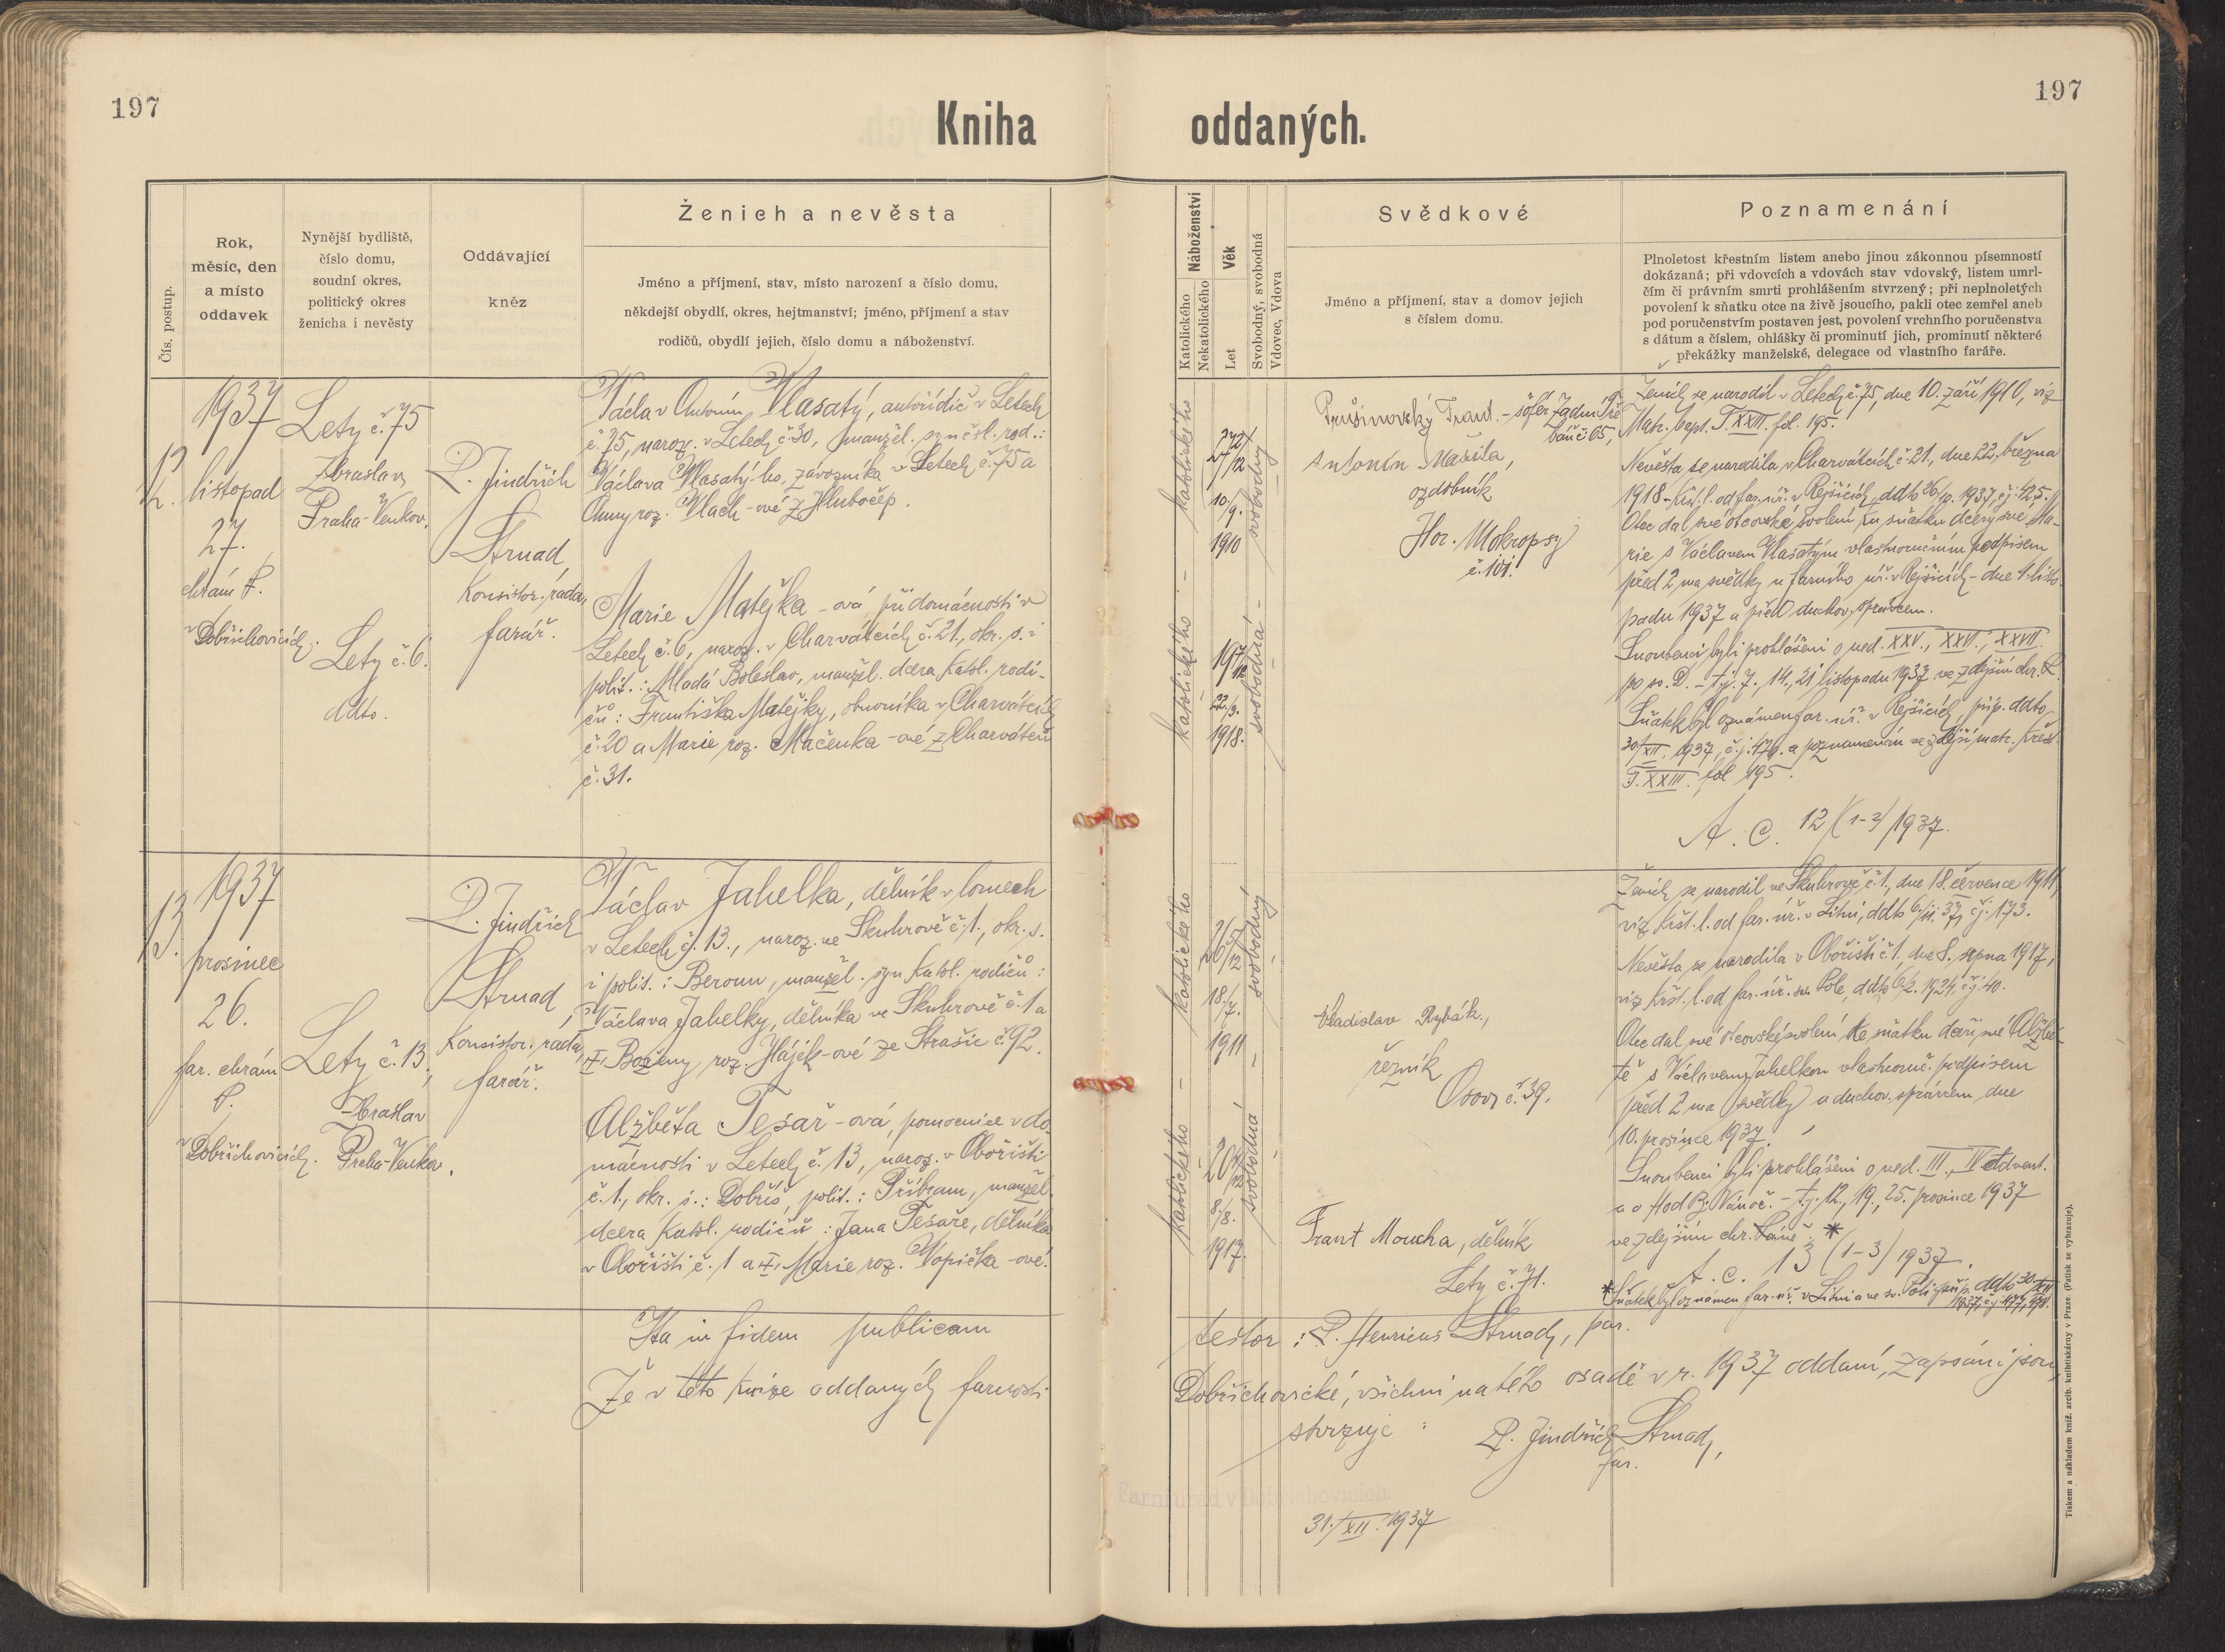 197
197
Kniha oddaných.
Čís. postup.
Rok,
měsíc, den
a místo
oddavek
Nynější bydliště,
číslo domu,
soudní okres,
politický okres
ženicha i nevěsty
Oddávající
kněz
Ženich a nevěsta
Jméno a příjmení, stav, místo narození a číslo domu,
někdejší obydlí, okres, hejtmanství; jméno, příjmení a stav
rodičů, obydlí jejich, číslo domu a náboženství.
Náboženství
Katolického
Nekatolického
Věk
Let
Svobodný, svobodná
Vdovec, Vdova
Svědkové
Jméno a příjmení, stav a domov jejich
s číslem domu.
Poznamenání
Plnoletost křestním listem anebo jinou zákonnou písemností
dokázaná; při vdovcích a vdovách stav vdovský, listem umrl-
čím či právním smrti prohlášením stvrzený; při neplnoletých
povolení k sňatku otce na živě jsoucího, pakli otec zemřel aneb
pod poručenstvím postaven jest, povolení vrchního poručenstva
s dátum a číslem, ohlášky či prominutí jich, prominutí některé
překážky manželské, delegace od vlastního faráře.
12.
1937
listopad
27.
chrám P.
v Dobřichovicích.
Lety č. 75
Zbraslav,
Praha-Venkov.
Lety č. 6.
ddto.
P. Jindřich
Strnad,
Konsistor. rada,
farář.
Václav Antonín Vlasatý, autořidič v Letech
č. 75, naroz. v Letech č. 30, manžel. syn čsl. rod.:
Václava Vlasatý-ho, závozníka v Letech č. 75 a
Anny roz. Vlach-ové z Hlubočep.
Marie Matějka-ová, při domácnosti v
Letech č. 6, naroz. v Charvátcích č. 21., okr. s. i
polit.: Mladá Boleslav, manžel. dcera katol. rodi-
čů: Františka Matějky, obuvníka v Charvátcích
č. 20 a Marie roz. Mačenka-ové z Charvátec
č. 31.
katolického -
katolického
27 2/12
10./9.
1910
svobodný
19 7/12
22/3.
1918.
svobodná -
Průšinovský Frant. - šofér Zadní Tře-
báň č. 65,
Antonín Mašila,
ozdobník
Hor. Mokropsy
č. 101.
Ženich se narodil v Letech č. 75, dne 10. září 1910, viz
Matr. bapt. T. XXIII. fol. 195.
Nevěsta se narodila v Charvátcích č. 21., dne 22. března
1918 - křst. l. od far. úř. v Rejšicích, ddto 26/10. 1937, čj. 425.
Otec dal své otcovské svolení ku sňatku dcery své Ma-
rie s Václavem Vlasatým vlastnoručním podpisem
před 2 ma svědky u farního úř. v Rejšicích - dne 4. listo-
padu 1937 a před duchov. správcem.
Snoubenci byli prohlášeni o ned. XXV., XXVI., XXVII.
po sv. D. - tj. 7., 14., 21 listopadu 1937 ve zdejším chr. P.
Sňatek byl oznámen far. úř. v Rejšicích, příp. ddto
30/XII. 1937, č. j. 470. a poznamenán ve zdejší matr. křest.
T. XXIII. fol. 195.
A. C. 12 (1-3) 1937.
13.
1937
prosinec
26.
far. chrám
P.
v Dobřichovicích.
Lety č. 13,
Zbraslav
Praha-Venkov.
P. Jindřich
Strnad,
Konsistor. rada,
farář.
Václav Jahelka, dělník v lomech
v Letech č. 13., naroz. ve Skuhrově č. 1., okr. s.
i polit.: Beroun, manžel. syn katol. rodičů:
Václava Jahelky, dělníka ve Skuhrově č. 1 a
Boženy, roz. Hájek-ové ze Strašic č. 92.
Alžběta Tesař-ová, pomocnice v do-
mácnosti v Letech č. 13, naroz. v Obořišti
č. 1., okr. s.: Dobříš, polit.: Příbram, manžel.
dcera katol. rodičů: Jana Tesaře, dělníka
v Obořišti č. 1 a Marie roz. Vopička-ové.
katolického -
katolického
26 5/12
18./7.
1911
svobodný -
20 4/12
8./8.
1917.
svobodná
Vladislav Rybák.,
řezník
Osov č. 39.
Frant Moucha, dělník
Lety č. 71.
Ženich se narodil ve Skuhrově č. 1., dne 18. července 1911,
viz křst. l. od far. úř. v Litni, ddto 6./11. 37, čj. 173.
Nevěsta se narodila v Obořišti č. 1, dne 8. srpna 1917,
viz křst. l. od far. úř. sv. Pole, ddto 6/2. 1924, čj. 40.
Otec dal své otcovské svolení ke sňatku dceři své Alžbě-
tě s Václavem Jahelkou vlastnoruč. podpisem
před 2 ma svědky a duchov. správcem dne
10. prosince 1937.
Snoubenci byli prohlášeni o ned. III., IV. advent.
a o Hod B. Vánoč. - tj. 12., 19., 25. prosince 1937
ve zdejším chr. Páně. *
A. C. 13 (1-3) 1937.
* Sňatek byl oznámen far. úř. v Litni a ve sv. Poli příp. ddto 30./XII
1937, č. j. 477, 478.
Ita in fidem publicam testor: P. Henricus Strnad, par.
Že v této knize oddaných farnosti Dobřichovické, všichni na této osadě v r. 1937 oddaní, zapsáni jsou,
stvrzuje: P. Jindřich Strnad,
far.
Farní úřad v Dobřichovicích.
31./XII. 1937
Tiskem a nákladem kníž. arcib. knihtiskárny v Praze. (Patisk se vyhrazuje).